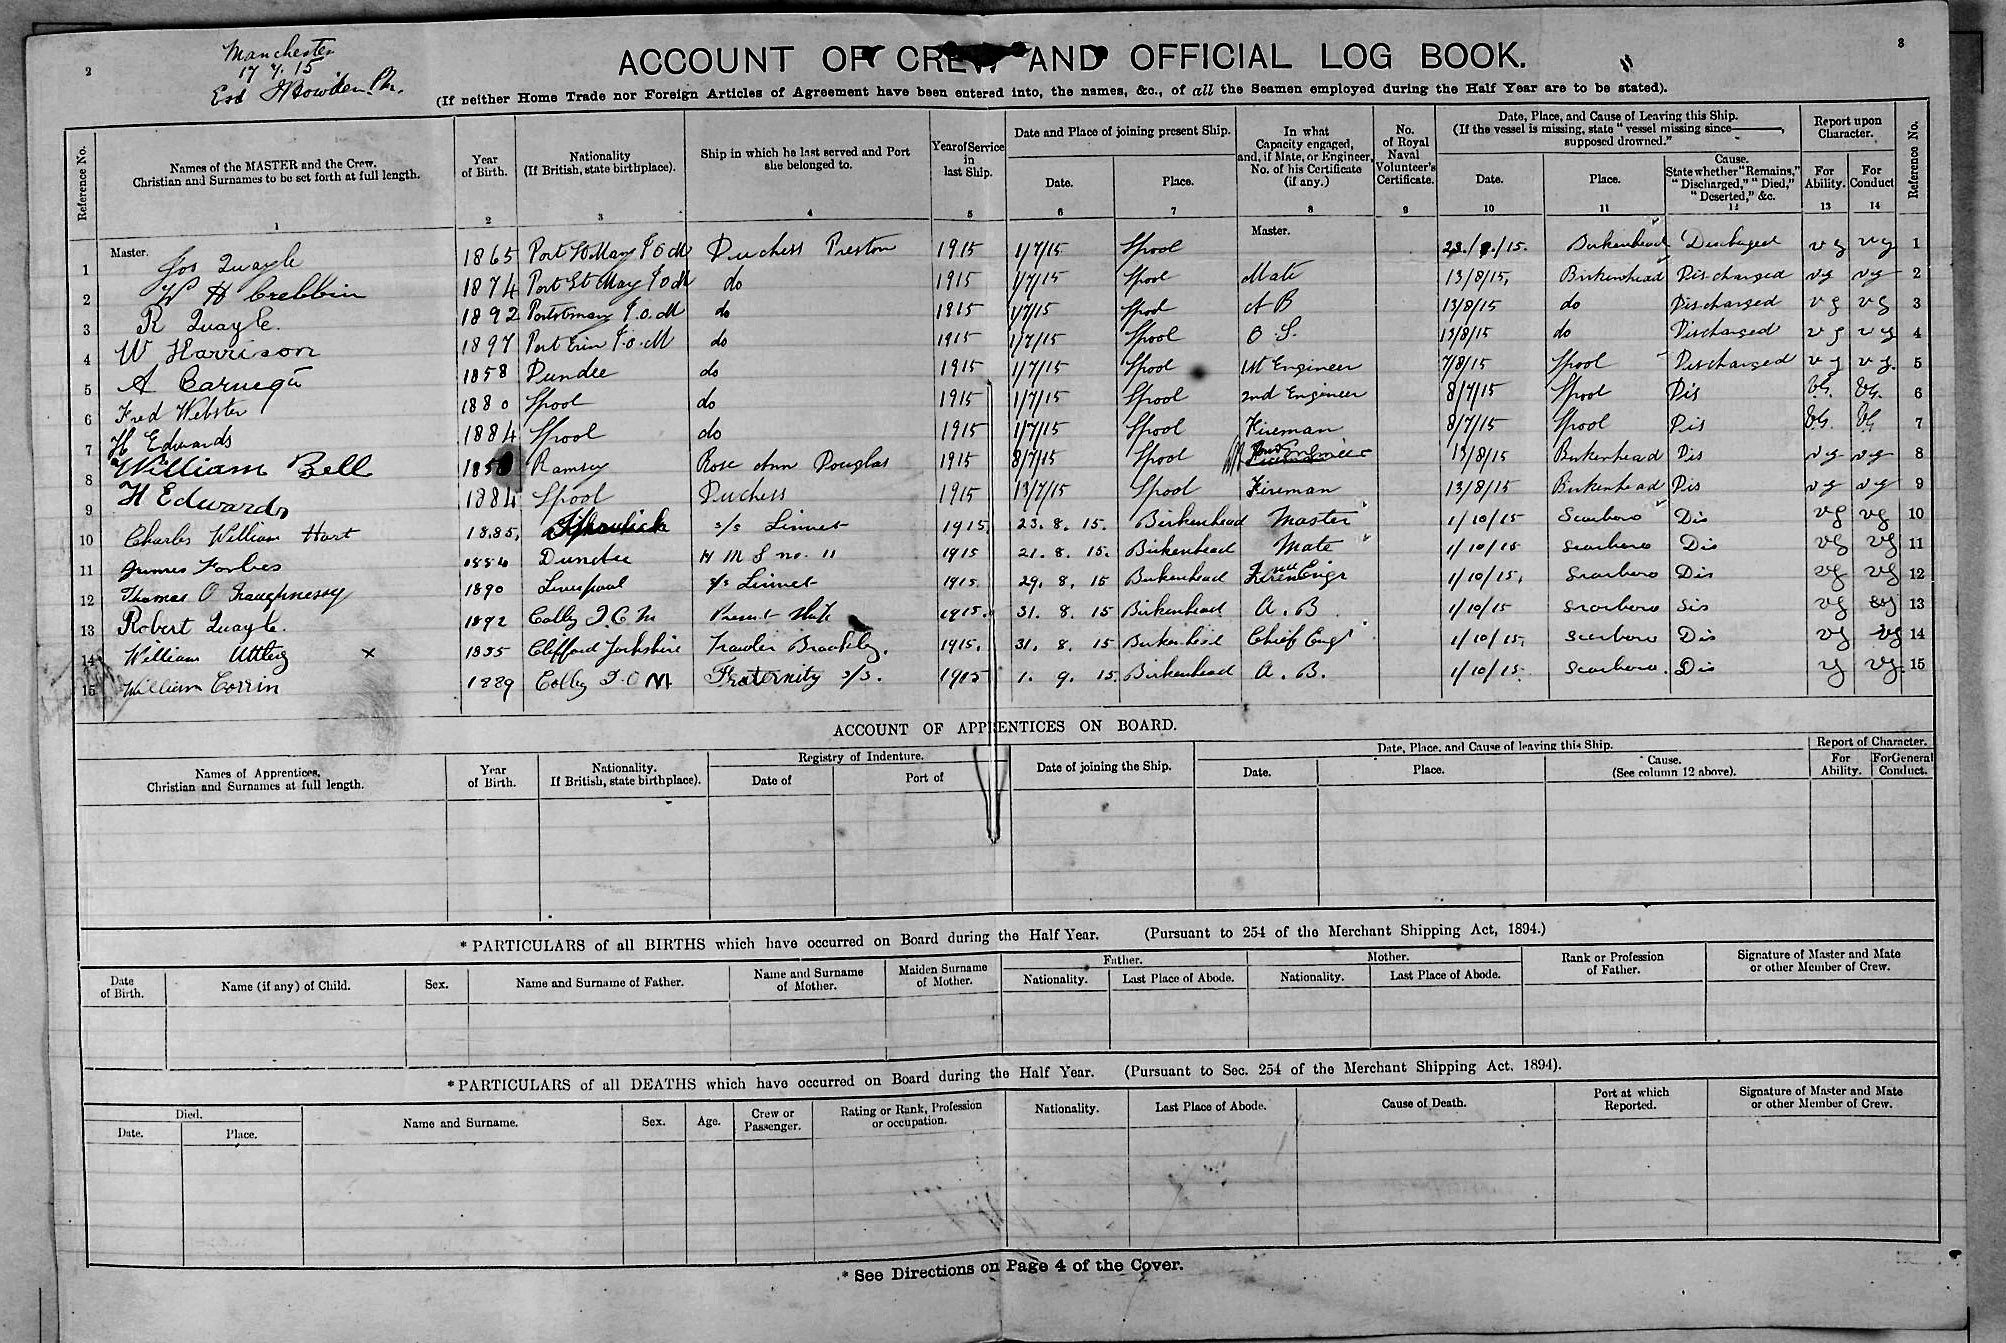 2
3
Manchester
17 7 15
ACCOUNT OF CREW AND OFFICIAL LOG BOOK.
(If neither Home Trade nor Foreign Articles of Agreement have been entered into, the names, &c., of all the Seamen employed during the Half Year are to be stated).
Reference No.
Names of the MASTER and the Crew. Christian and Surnames to be set forth at full length.
Year of Birth.
Nationality (If British, state birthplace).
Ship in which he last served and Port she belonged to.
Year of Service in last Ship.
Date and Place of joining present Ship.
Date.
Place.
In what Capacity engaged, and, if Mate, or Engineer, No. of his Certificate (if any.)
No. of Royal Naval Volunteer's Certificate.
Date, Place, and Cause of Leaving this Ship. (If the vessel is missing, state "vessel missing since ———, supposed drowned."
Date.
Place.
Cause. State whether "Remains," "Discharged," "Died," "Deserted, &c.
Report upon Character.
For Ability.
For Conduct
Reference No.
1 2 3 4 5 6 7 8 9 10 11 12 13 14
1 Master. Jos Quayle 1865 Port St Mary I o M Duchess Preston 1915 1/7/15 Lpool Master. /15. Birkenhead Discharged vg vg 1
2 W H Crebbin 1874 Port St Mary I o M do 1915 1/7/15 Lpool Mate 13/8/15, Birkenhead Discharged vg vg 2
3 R Quayle. 1892 Port St Mary I.o.M do 1915 1/7/15 Lpool A B 13/8/15 do Discharged vg vg 3
4 W Harrison 1897 Port Erin I.o.M do 1915 1/7/15 Lpool O S. 13/8/15 do Discharged vg vg 4
5 A Carnegie 1858 Dundee do 1915 1/7/15 Lpool 1st Engineer 7/8/15 Lpool Discharged vg vg. 5
6 Fred Webster 1880 Lpool do 1915 1/7/15 Lpool 2nd Engineer 8/7/15 Lpool Dis VG. VG. 6
7 H Edwards 1884 Lpool do 1915 1/7/15 Lpool Fireman 8/7/15 Lpool Dis VG. VG 7
8 William Bell Ramsey Rose Ann Douglas 1915 8/7/15 Lpool 2nd Engineer 13/8/15 Birkenhead Dis vg vg 8
9 H Edwards 1884 Lpool Duchess 1915 13/7/15 Lpool Fireman 13/8/15 Birkenhead Dis vg vg 9
10 Charles William Hart 1885, s/s Linnet 1915, 23. 8. 15. Birkenhead Master 1/10/15 Scarboro Dis vg vg 10
11 James Forbes Dundee H M S no. 11 1915 21. 8. 15. Birkenhead Mate 1/10/15 Scarboro Dis vg vg 11
12 Thomas O Shaughnessy 1890 Liverpool s/s Linnet 1915. 29. 8. 15 Birkenhead 2nd Engr 1/10/15, Scarboro Dis vg vg 12
13 Robert Quayle. 1892 Colby I.O.M Present Ship 1915. 31. 8. 15 Birkenhead A. B. 1/10/15 Scarboro Dis vg vg 13
14 William Uttley × 1855 Clifford Yorkshire Trawler Brackley. 1915. 31. 8. 15 Birkenhead Chief Engr 1/10/15, Scarboro Dis vg vg 14
15 William Corrin 1889 Colby I.O M Fraternity s/s. 1915 1. 9. 15. Birkenhead A. B. 1/10/15. Scarboro. Dis vg vg. 15
ACCOUNT OF APPRENTICES ON BOARD.
Names of Apprentices, Christian and Surnames at full length.
Year of Birth.
Nationality. If British, state birthplace).
Registry of Indenture.
Date of
Port of
Date of joining the Ship.
Date, Place, and Cause of leaving this Ship.
Date.
Place.
Cause. (See column 12 above).
Report of Character.
For Ability.
For General Conduct.
*PARTICULARS of all BIRTHS which have occurred on Board during the Half Year. (Pursuant to 254 of the Merchant Shipping Act, 1894.)
Date of Birth.
Name (if any) of Child.
Sex.
Name and Surname of Father.
Name and Surname of Mother.
Maiden Surname of Mother.
Father.
Nationality.
Last Place of Abode.
Mother.
Nationality.
Last Place of Abode.
Rank or Profession of Father.
Signature of Master and Mate or other Member of Crew.
*PARTICULARS of all DEATHS which have occurred on Board during the Half Year. (Pursuant to Sec. 254 of the Merchant Shipping Act, 1894).
Died.
Date.
Place.
Name and Surname.
Sex.
Age.
Crew or Passenger.
Rating or Rank, Profession or occupation.
Nationality.
Last Place of Abode.
Cause of Death.
Port at which Reported.
Signature of Master and Mate or other Member of Crew.
* See Directions on Page 4 of the Cover.